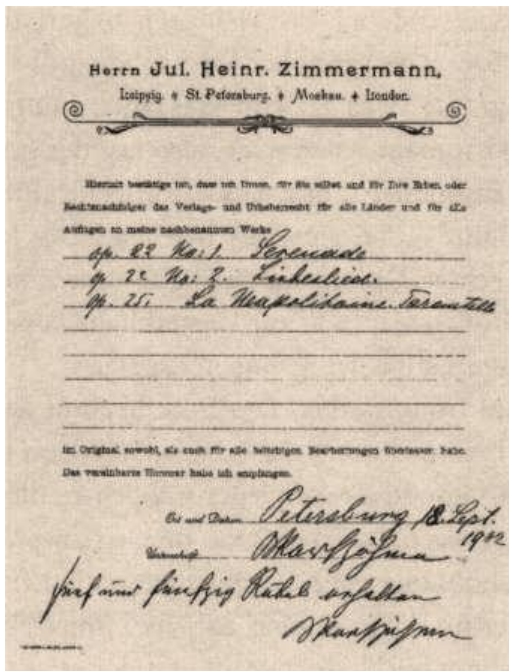 Herrn Jul. Heinr. Zimmermann,
Leipzig. + St. Petersburg. + Moskau. + London.
Hiermit bestätige ich, dass ich Ihnen, für Sie selbst und für Ihre Erben oder
Rechtsnachfolger das Verlags- und Urheberrecht für alle Länder und für alle
Auflagen an meine nachbenannten Werke
op. 22 No: 1. Serenade
op. 22 No: 2. Liebeslied.
op. 25. La Napolitaine. Tarantelle
im Original sowohl, als auch für alle beliebigen Bearbeitungen überlassen habe.
Das vereinbarte Honorar habe ich empfangen.
Ort und Datum Petersburg 18. Sept.
1902
Unterschrift
fünf und fünfzig Rubel erhalten